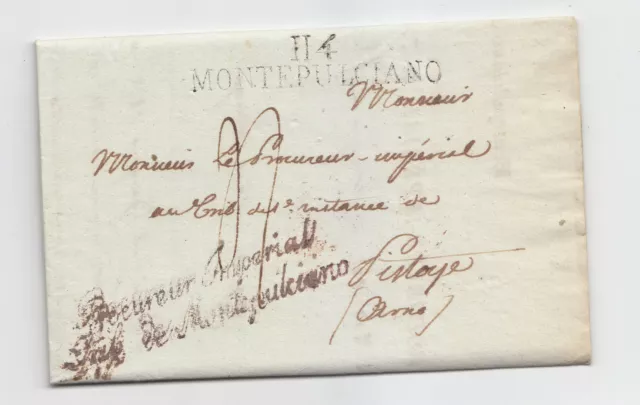 114
MONTEPULCIANO
Monsieur
Monsieur Le Procureur-impérial
au Trib de 1e instance de
Pistoye
(Arno)
Procureur Imperial
de Montepulciano